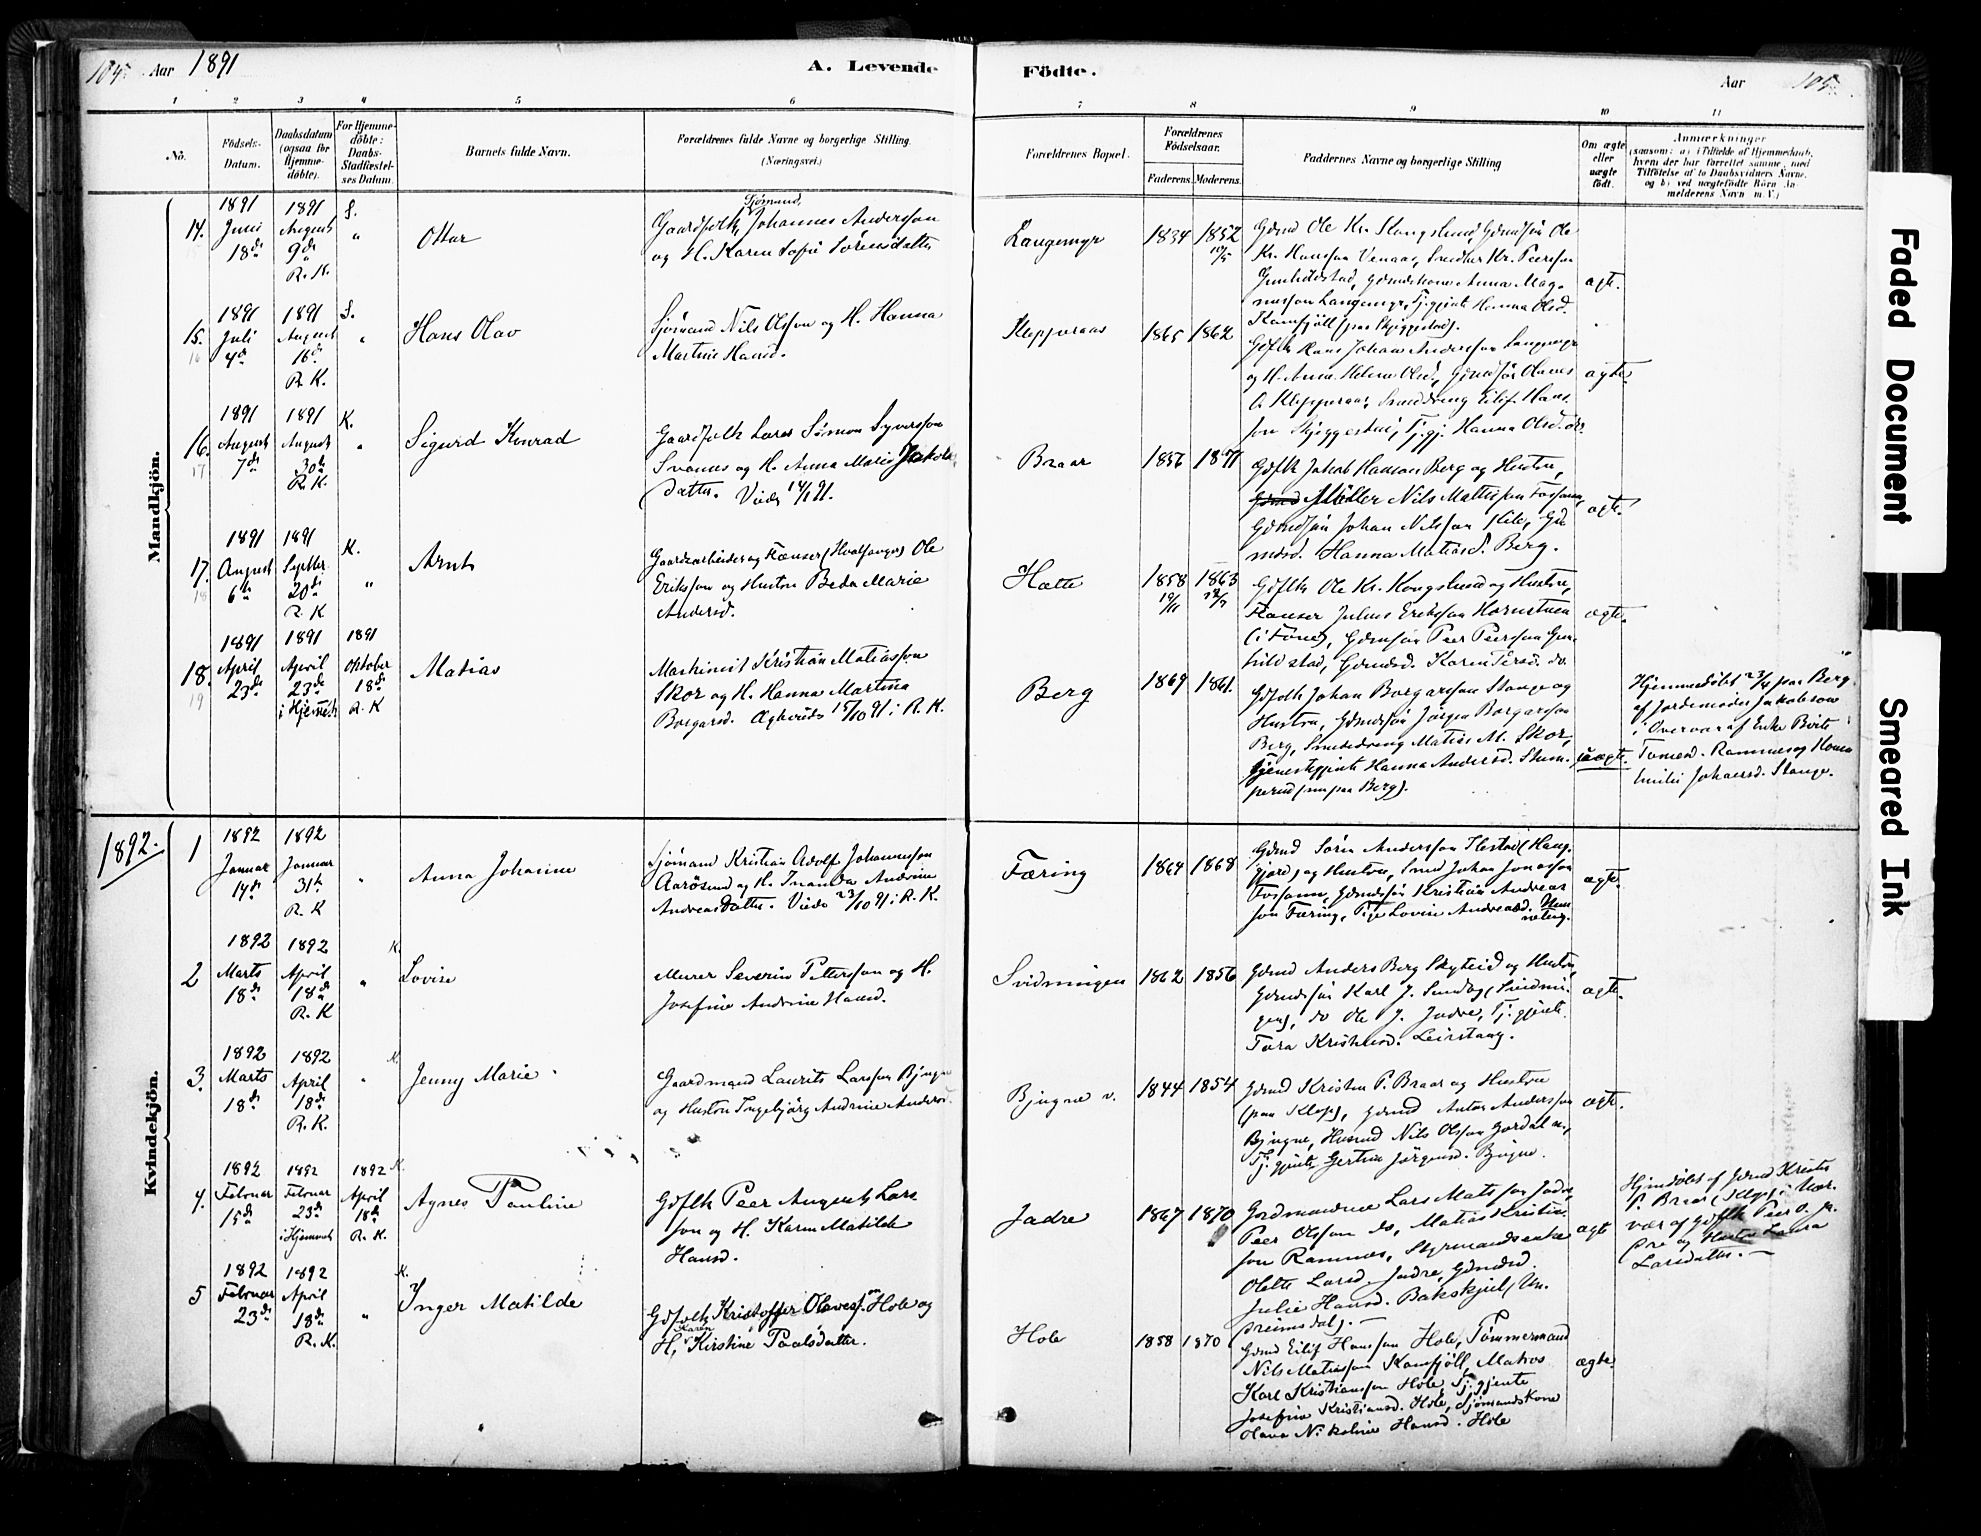 105. Aar 1891 A. Levende Födte. Aar 105.
1 2 3 4 5 6 7 8 9 10 11
No. Födsels-Datum. Daabsdatum (ogsaa for Hjemme-döbte). For Hjemme-döbte: Daabs-Stadfæstel-ses Datum. Barnets fulde Navn. Forældrenes fulde Navne og borgerlige Stilling. (Næringsvei.)
Forældrenes Bopæl. Forældrenes Födselsaar. Faderens. Moderens. Faddernes Navne og borgerlige Stilling Om ægte eller uægte födt. Anmærkninger (saasom: a) i Tilfælde af Hjemmedaab, hvem der har forrettet samme, med Tilföielse af to Daabsvidners Navne, og b) ved uægtefödte Börn Anmelderens Navn m. V.)
Mandkjön.
14. 1891 Juni 18de
1891 August 9de R. K.
S. "
Ottar
Sjømand,
Gaardfolk, Johannes Andersson
og H. Karen Sofie Sörensdatter
Langemyr
1834 1852 10/5
Gdmd Ole Kr. Stangslund, Gdmdsön Ole
Kr. Hansson Venaas, Snedker Kr. Peersson
Gunhildstad, Gdmdskone Anna Mag-
nusson Langemyr, Tj.gjente Hanna Olsd.
Kamfjöll (paa Skjeggestad).
ægte.
15. 16 1891 Juli 4de
1891 August 16de R. K.
S. "
Hans Olav
Sjömand Nils Olsson og H. Hanna
Martine Hansd.
Klepperaas
1865 1862
Gdflk Hans Johan Andersson Langemyr
og H. Anna Helene Olsd, Gdmdsön Olaves
O. Klepperaas, Smeddreng Eilif Hans-
son Skjeggestad, Tj.gj. Hanna Olsd. do.
ægte.
16. 17 1891 August 7de
1891 August 30te R. K.
K. "
Sigurd Konrad
Gaardfolk Lars Simon Syversson
Svanes og H. Anna Marie Jakobs-
datter. Viede 14/1 91.
Braar
1856 1871
Gdflk Jakob Hanson Berg og Hustru,
Gdmd Möller Nils Mattisson Fossane,
Gdmdsön Johan Nilsson Kile, Gd-
mdsd. Hanna Matiasd. Berg.
ægte.
17. 18 1891 August 6te
1891 Septbr 20de R. K
K. "
Arnt
Gaardsarbeider og Flænser (Hvalfanger) Ole
Eriksson og Hustru Beda Marie
Andersd.
Hatte
1858 19/11 1863 12/7
Gdflk Ole Kr. Kongslund og Hustru,
Flænser Julius Eriksson Hornstuen
(i Föne), Gdmdsön Peer Peersson Gun-
hildstad, Gdmdsd. Karen Persd. do.
ægte.
18. 19 1891 April 23de
1891 April 23de i Hjemmet
1891 Oktober 18de R. K
Matias
Maskinist Kristian Matiasson
Skor og H. Hanna Martina
Borgarsd. Ægteviede 15/10 91 i R. K.
Berg
1869 1861.
Gdfolk Johan Borgarsson Stange og
Hustru, Gdmdsön Jörgen Borgarsson
Berg, Smededreng Matias M. Skor,
Tjenestegjente Hanna Andersd. Stum-
perud (nu paa Berg).
uægte.
Hjemmedöbt 23/4 paa Berg
af Jordemoder Jakobson
i Overvær af Enke Berte
Tomesd. Ramnes og Hanna
Emilie Johansd. Stange.
1892.
Kvindekjön.
1 1892 Januar 14de
1892 Januar 31te R. K
"
Anna Johanne
Sjömand Kristian Adolf Johannesson
Aarösund og H. Inanda Andrine
Andreasdatter. Viede 23/10 91 i R. K.
Færing
1864 1868
Gdmd Sören Andersson Skestad (Haug-
gjord) og Hustru, Smed Johan Jonasson
Fossane, Gdmdsön Kristian Andreas-
son Færing, Pige Lovise Andreasd.
ægte.
2 1892 Marts 18de
1892 April 18de R. K
K. "
Lovise
Murer Severin Pettersson og H.
Josefine Andrine Hansd.
Svidmingen
1862 1856
Gdmd Anders Berg Skyteid og Hustru,
Gdmdsön Karl J. Sundby (Svidmin-
gen), do Ole J. Jadre, Tj.gjente
Tara Kristensd. Leirstang.
ægte.
3. 1892 Marts 18de
1892 April 18de R. K.
K. "
Jenny Marie
Gaardmand Laurits Larsson Bjugne
og Hustru Ingebjörg Andrine Andersd.
Bjugne v.
1844 1854
Gdmd Kristen P. Braar og Hustru
(paa Klop), Gdmd Anton Andersson
Bjugne, Husmd Nils Olsson Gordal n.,
Tj.gjente Gertine Jörgensd. Bjugne.
ægte.
4. 1892 Februar 15de
1892 Februar 23de i Hjemmet
1892 April 18de R. K.
K.
Agnes Pauline
Gdflk Peer August Lars-
son og H. Karen Matilde
Hansd.
Jadre
1867 1870
Gordmændene Lars Matsson Jadre,
Peer Olsson do, Matias Kristian-
son Ramnes, Styrmandsenke
Olette Larsd. Jadre, Gdmdsd.
Julie Hansd. Bakskjul (Un-
dreimsdal).
ægte
Hjemdöbt af Gdmd Kristen
P. Braar (Klop) i Nær-
vær af Gdflk Peer O. Ja-
dre og Hustru Laura
Larsdatter.
5 1892 Februar 23de
1892 April 18de R. K.
K. "
Inger Matilde
Gdfolk Kristoffer Olavesson Hole og
H, Karen Kirstine Paalsdatter.
Hole
1858 1870
Gdmd Eilif Hansson Hole, Tömmermand
Nils Matiasson Kamfjöll, Matros
Karl Kristiansson Hole, Tj.gjente
Josefine Kristiansd. Hole, Sjömandskone
Olava Nikoline Hansd. Hole
ægte.
Faded Document
Smeared Ink